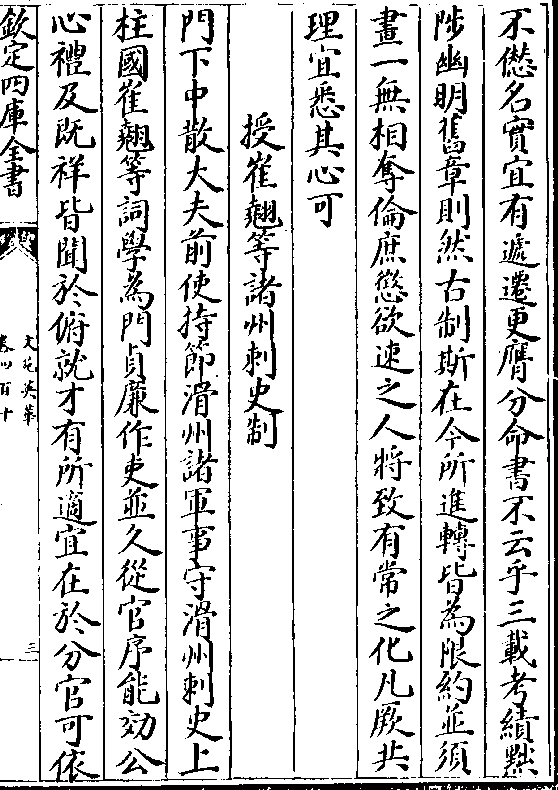 不僽名實宜有遞遷更膺分命書不云乎三載考績黜
陟幽明舊章則然古制斯在今所進轉皆為限約並須
畫一無相奪倫庶懲欲速之人將致有常之化凡厥共
理宜悉其心可
授崔翹等諸州刺史制
門下中散大夫前使持節滑州諸軍事守滑州刺史上
柱國崔翹等詞學為門貞廉作吏並久從官序能効公
心禮及既祥皆聞於俯就才有所適宜在於分官可依
欽定四庫全書
文苑英華
卷四百十
三